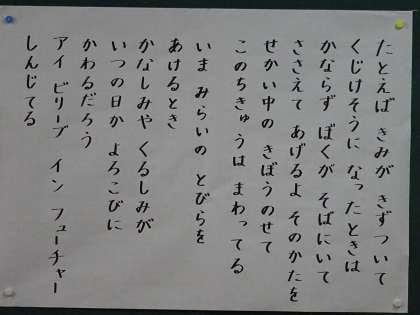 たとえば きみが きずついて
くじけそうに なったときは
かならず ぼくが そばにいて
ささえて あげるよ そのかたを
せかい中の きぼうのせて
このちきゅうは まわってる
いま みらいの とびらを
あけるとき
かなしみや くるしみが
いつの日か よろこびに
かわるだろう
アイ ビリーブ イン フューチャー
しんじてる